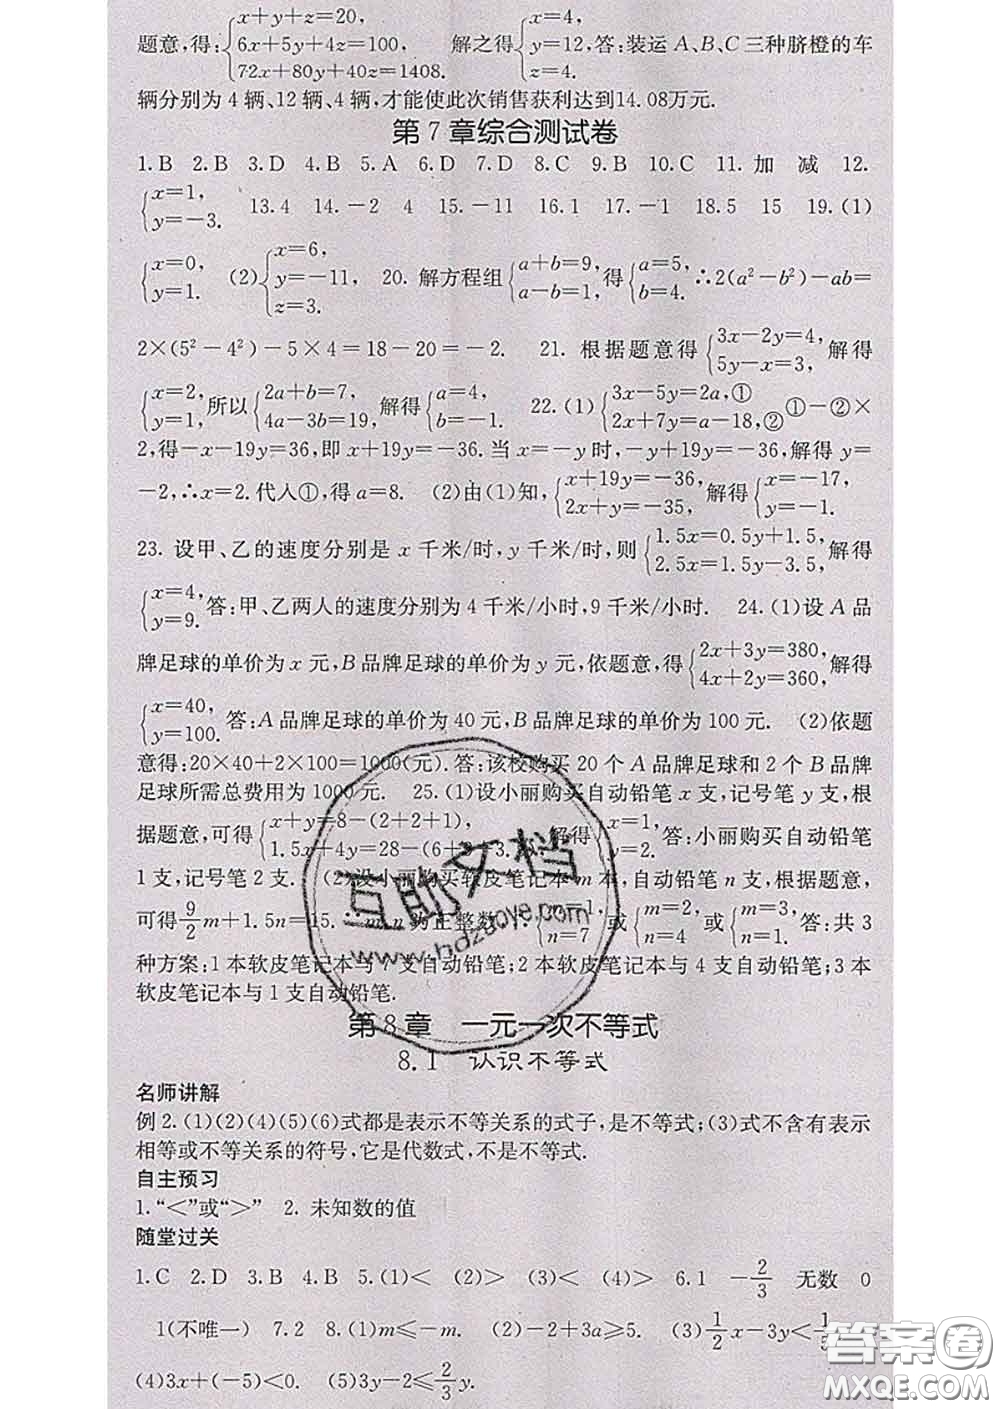 题意,得:{x+y+z=20, 6x+5y+4z=100, 72x+80y+40z=1408. 解之得{x=4, y=12, z=4. 答:装运A、B、C三种脐橙的车
辆分别为4辆、12辆、4辆,才能使此次销售获利达到14.08万元.
第7章综合测试卷
1.B 2.B 3.D 4.B 5.A 6.D 7.D 8.C 9.B 10.C 11.加 减 12.
{x=1, y=-3. 13.4 14.-2 4 15.-11 16.1 17.-1 18.5 15 19.(1)
{x=0, y=1. (2){x=6, y=-11, z=3. 20.解方程组{a+b=9, a-b=1, 得{a=5, b=4. ∴2(a²-b²)-ab=
2×(5²-4²)-5×4=18-20=-2. 21.根据题意得{3x-2y=4, 5y-x=3, 解得
{x=2, y=1, 所以{2a+b=7, 4a-3b=19, 解得{a=4, b=-1. 22.(1){3x-5y=2a,① 2x+7y=a-18,② ①-②×
2,得-x-19y=36,即x+19y=-36.当x=-y时,-y+19y=-36,解得y=
-2,∴x=2.代人①,得a=8. (2)由(1)知,{x+19y=-36, 2x+y=-35, 解得{x=-17, y=-1.
23.设甲、乙的速度分别是x千米/时,y千米/时,则{1.5x=0.5y+1.5, 2.5x=1.5y-3.5, 解得
{x=4, y=9. 答:甲、乙两人的速度分别为4千米/小时,9千米/小时. 24.(1)设A品
牌足球的单价为x元,B品牌足球的单价为y元,依题意,得{2x+3y=380, 4x+2y=360, 解得
{x=40, y=100. 答:A品牌足球的单价为40元,B品牌足球的单价为100元. (2)依题
意得:20×40+2×100=1000(元).答:该校购买20个A品牌足球和2个B品牌
足球所需总费用为1000元. 25.(1)设小丽购买自动铅笔x支,记号笔y支,根
据题意,可得{x+y=8-(2+2+1), 1.5x+4y=28-(6+ 解得{x=1, y=2. 答:小丽购买自动铅笔
1支,记号笔2支. (2)设小丽购买软皮笔记本m本,自动铅笔n支,根据题意,
可得9/2m+1.5n=15.∵m,n为正整数,∴{m=1, n=7 或{m=2, n=4 或{m=3, n=1. 答:共3
种方案:1本软皮笔记本与7支自动铅笔;2本软皮笔记本与4支自动铅笔;3本
软皮笔记本与1支自动铅笔.
第8章 一元一次不等式
8.1 认识不等式
名师讲解
例2.(1)(2)(4)(5)(6)式都是表示不等关系的式子,是不等式;(3)式不含有表示
相等或不等关系的符号,它是代数式,不是不等式.
自主预习
1.“<”或“>” 2.未知数的值
随堂过关
1.C 2.D 3.B 4.B 5.(1)< (2)> (3)< (4)> 6.1 -2/3 无数 0
1(不唯一) 7.2 8.(1)m≤-m. (2)-2+3a≥5. (3)1/2x-3y<1/5
(4)3x+(-5)<0. (5)3y-2≤2/3y.
互助文档
www.hdzuoye.com
答案圈
MXQE.COM